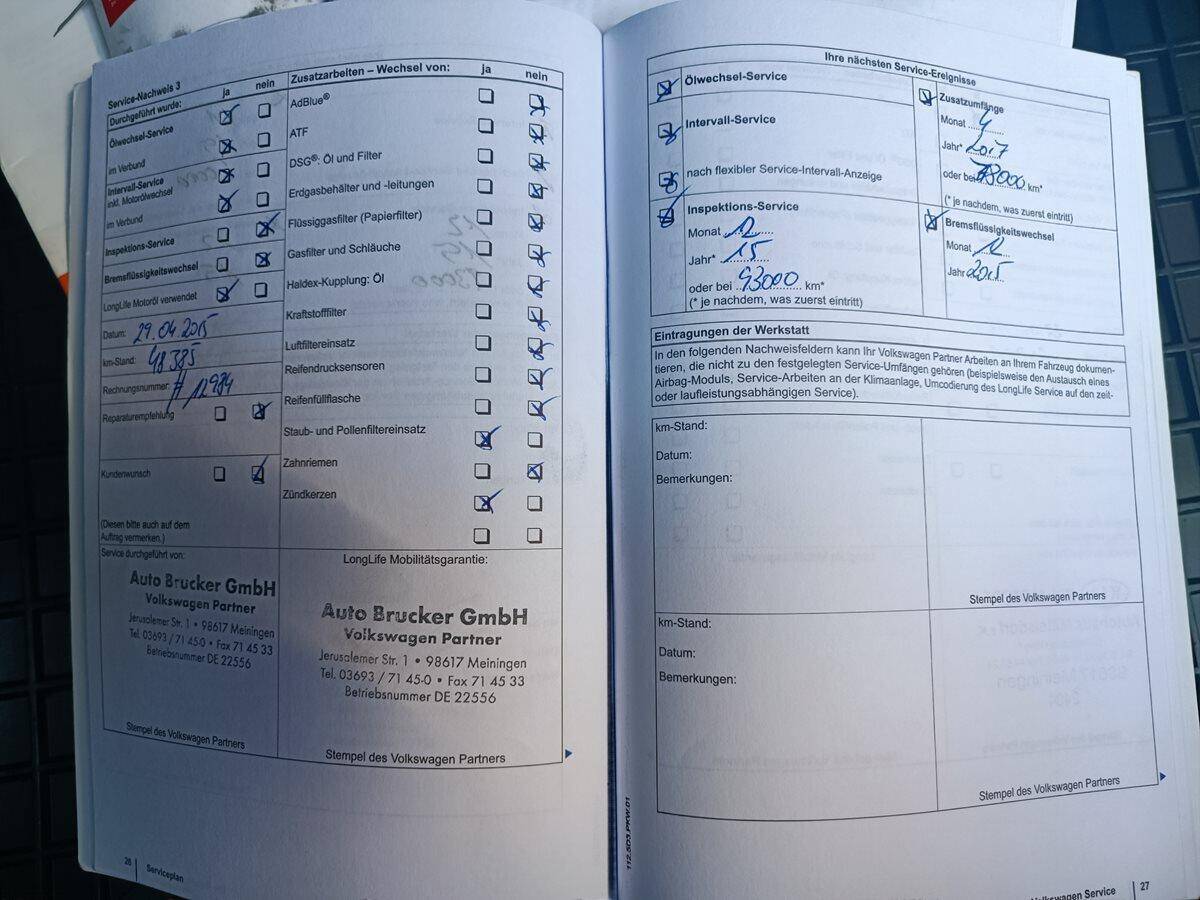 Service-Nachweis 3
Durchgeführt wurde: ja nein
Ölwechsel-Service
im Verbund
Intervall-Service
inkl. Motorölwechsel
im Verbund
Inspektions-Service
Bremsflüssigkeitswechsel
LongLife Motoröl verwendet
Datum: 29.04.2015
km-Stand: 48385
Rechnungsnummer: # 12984
Reparaturempfehlung
Kundenwunsch
(Diesen bitte auch auf dem
Auftrag vermerken.)
Zusatzarbeiten – Wechsel von: ja nein
AdBlue®
ATF
DSG®: Öl und Filter
Erdgasbehälter und -leitungen
Flüssiggasfilter (Papierfilter)
Gasfilter und Schläuche
Haldex-Kupplung: Öl
Kraftstofffilter
Luftfiltereinsatz
Reifendrucksensoren
Reifenfüllflasche
Staub- und Pollenfiltereinsatz
Zahnriemen
Zündkerzen
Service durchgeführt von:
Auto Brucker GmbH
Volkswagen Partner
Jerusalemer Str. 1 • 98617 Meiningen
Tel. 03693 / 71 45-0 • Fax 71 45 33
Betriebsnummer DE 22556
Stempel des Volkswagen Partners
LongLife Mobilitätsgarantie:
Auto Brucker GmbH
Volkswagen Partner
Jerusalemer Str. 1 • 98617 Meiningen
Tel. 03693 / 71 45-0 • Fax 71 45 33
Betriebsnummer DE 22556
Stempel des Volkswagen Partners
26 Serviceplan
Ihre nächsten Service-Ereignisse
Ölwechsel-Service
Intervall-Service
nach flexibler Service-Intervall-Anzeige
Inspektions-Service
Monat 12
Jahr* 15
oder bei 93000 km*
(* je nachdem, was zuerst eintritt)
Zusatzumfänge
Monat 4
Jahr* 2017
oder bei km*
(* je nachdem, was zuerst eintritt)
Bremsflüssigkeitswechsel
Monat 12
Jahr 2015
Eintragungen der Werkstatt
In den folgenden Nachweisfeldern kann Ihr Volkswagen Partner Arbeiten an Ihrem Fahrzeug dokumen-
tieren, die nicht zu den festgelegten Service-Umfängen gehören (beispielsweise den Austausch eines
Airbag-Moduls, Service-Arbeiten an der Klimaanlage, Umcodierung des LongLife Service auf den zeit-
oder laufleistungsabhängigen Service).
km-Stand:
Datum:
Bemerkungen:
Stempel des Volkswagen Partners
km-Stand:
Datum:
Bemerkungen:
Stempel des Volkswagen Partners
112.5D3.PKW.01
Volkswagen Service 27